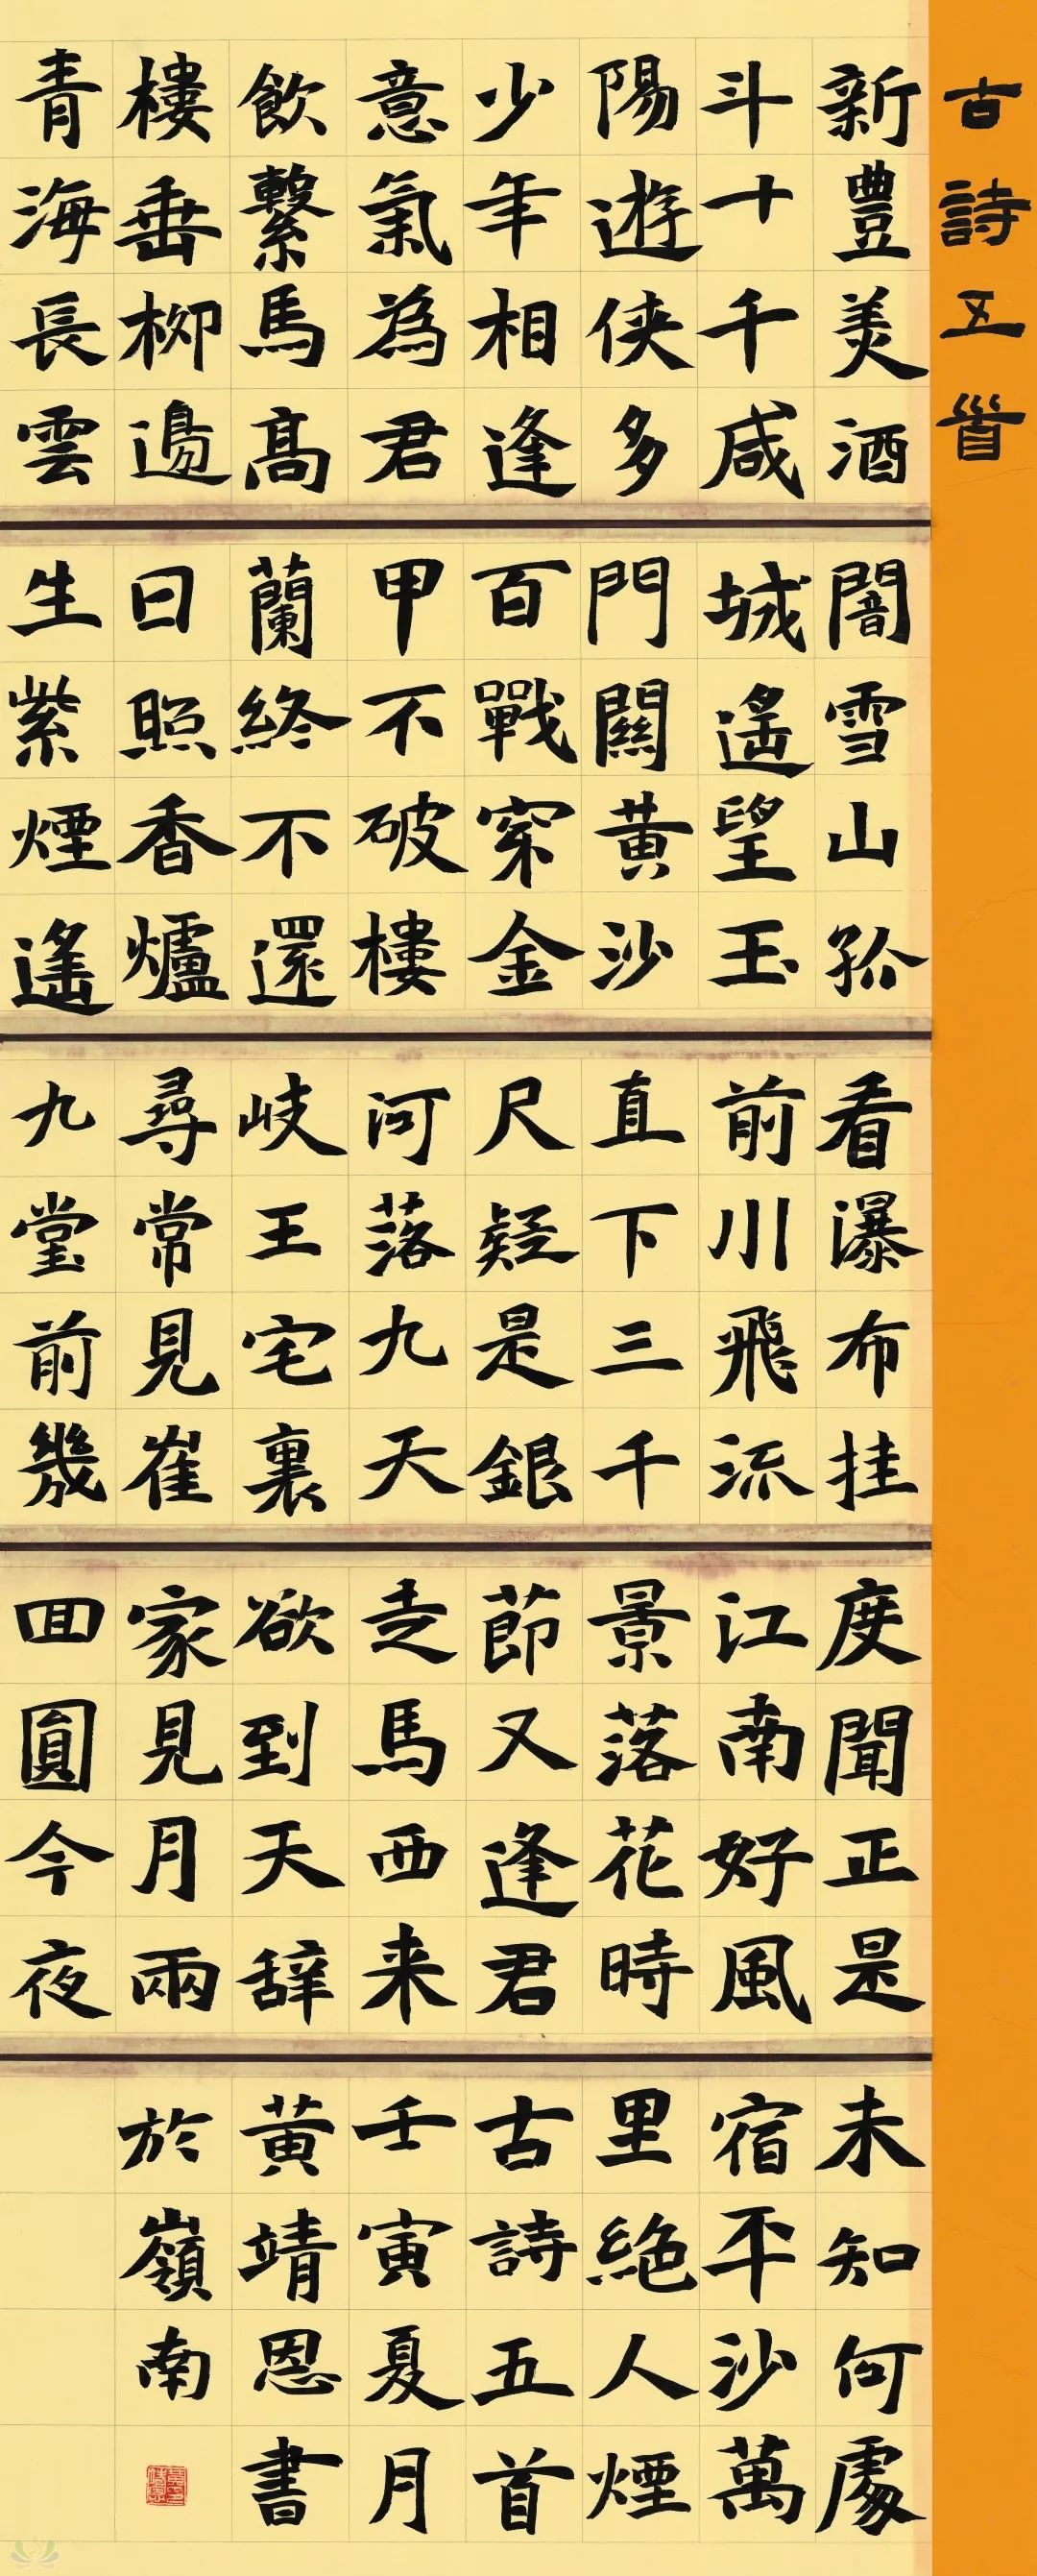 古詩五首
新豐美酒
斗十千咸
陽遊侠多
少年相逢
意氣為君
飲繫馬高
樓垂柳邊
青海長雲
闇雪山孤
城遙望玉
門關黃沙
百戰穿金
甲不破樓
蘭終不還
日照香爐
生紫煙遙
看瀑布挂
前川飛流
直下三千
尺疑是銀
河落九天
岐王宅裏
尋常見崔
九堂前幾
度聞正是
江南好風
景落花時
節又逢君
走馬西来
欲到天辞
家見月兩
囬圓今夜
未知何處
宿平沙萬
里絕人煙
古詩五首
壬寅夏月
黃靖恩書
於嶺南